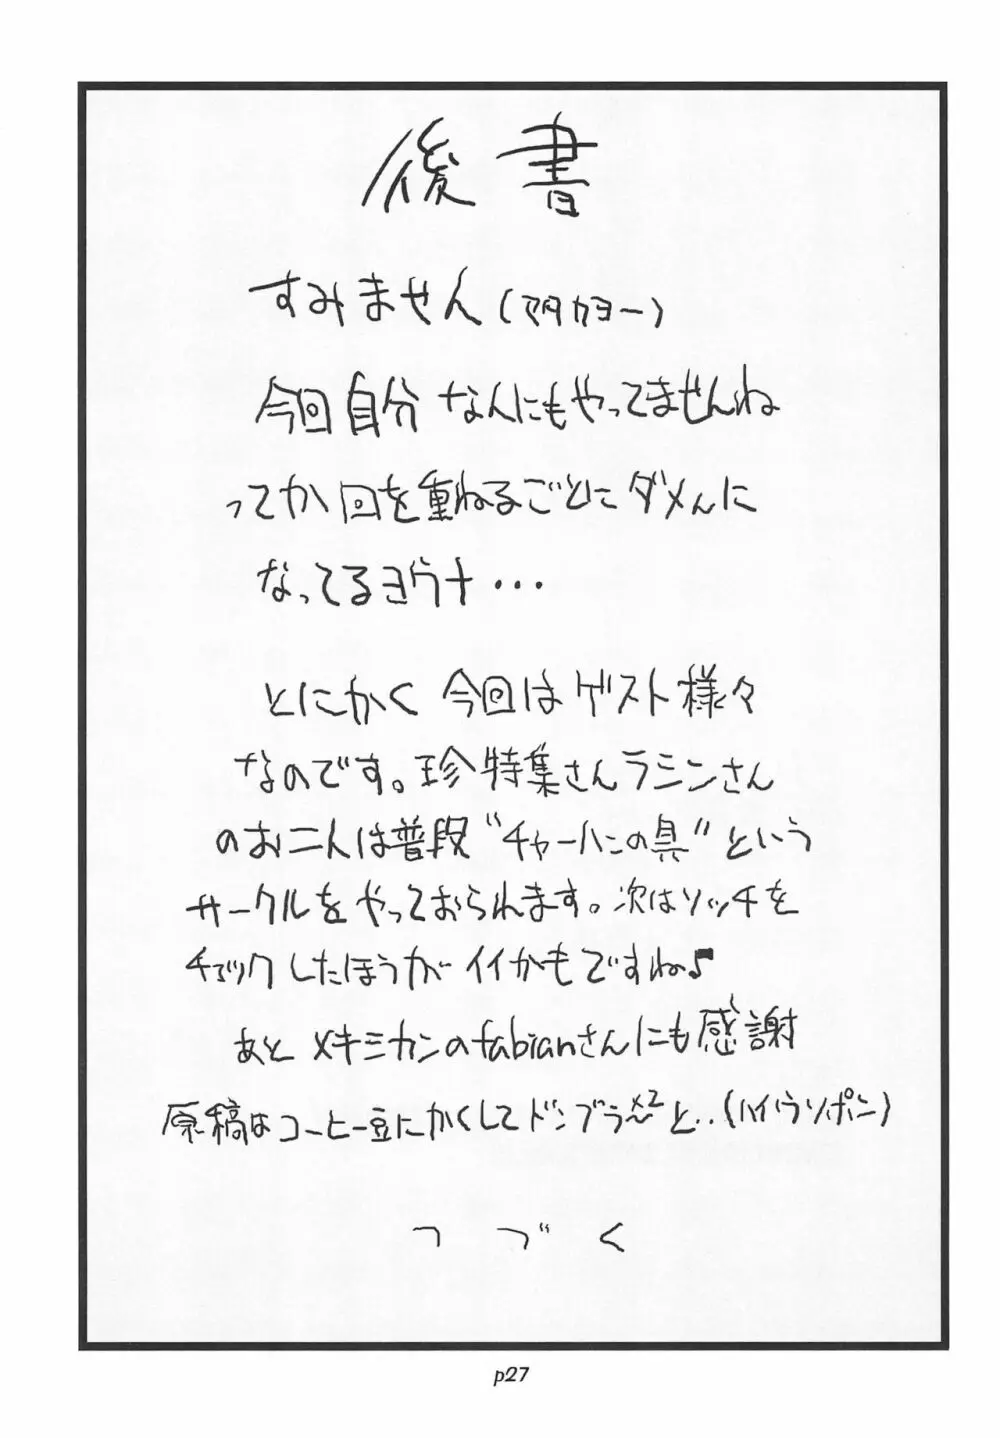 後書
すみません(マタカヨー)
今回自分なんにもやってませんね
ってか回を重ねるごとにダメんに
なってるヨウナ・・・
とにかく今回はゲスト様々
なのです。珍特集さんラミンさん
のお二人は普段“チャーハンの具”という
サークルをやっておられます。次はソッチを
チェックしたほうがイイかもですね♪
あとメキシカンのfabianさんにも感謝
原稿はコーヒー豆にかくしてドンブラ〜×2と..(ハイハウソポン)
つづく
p27